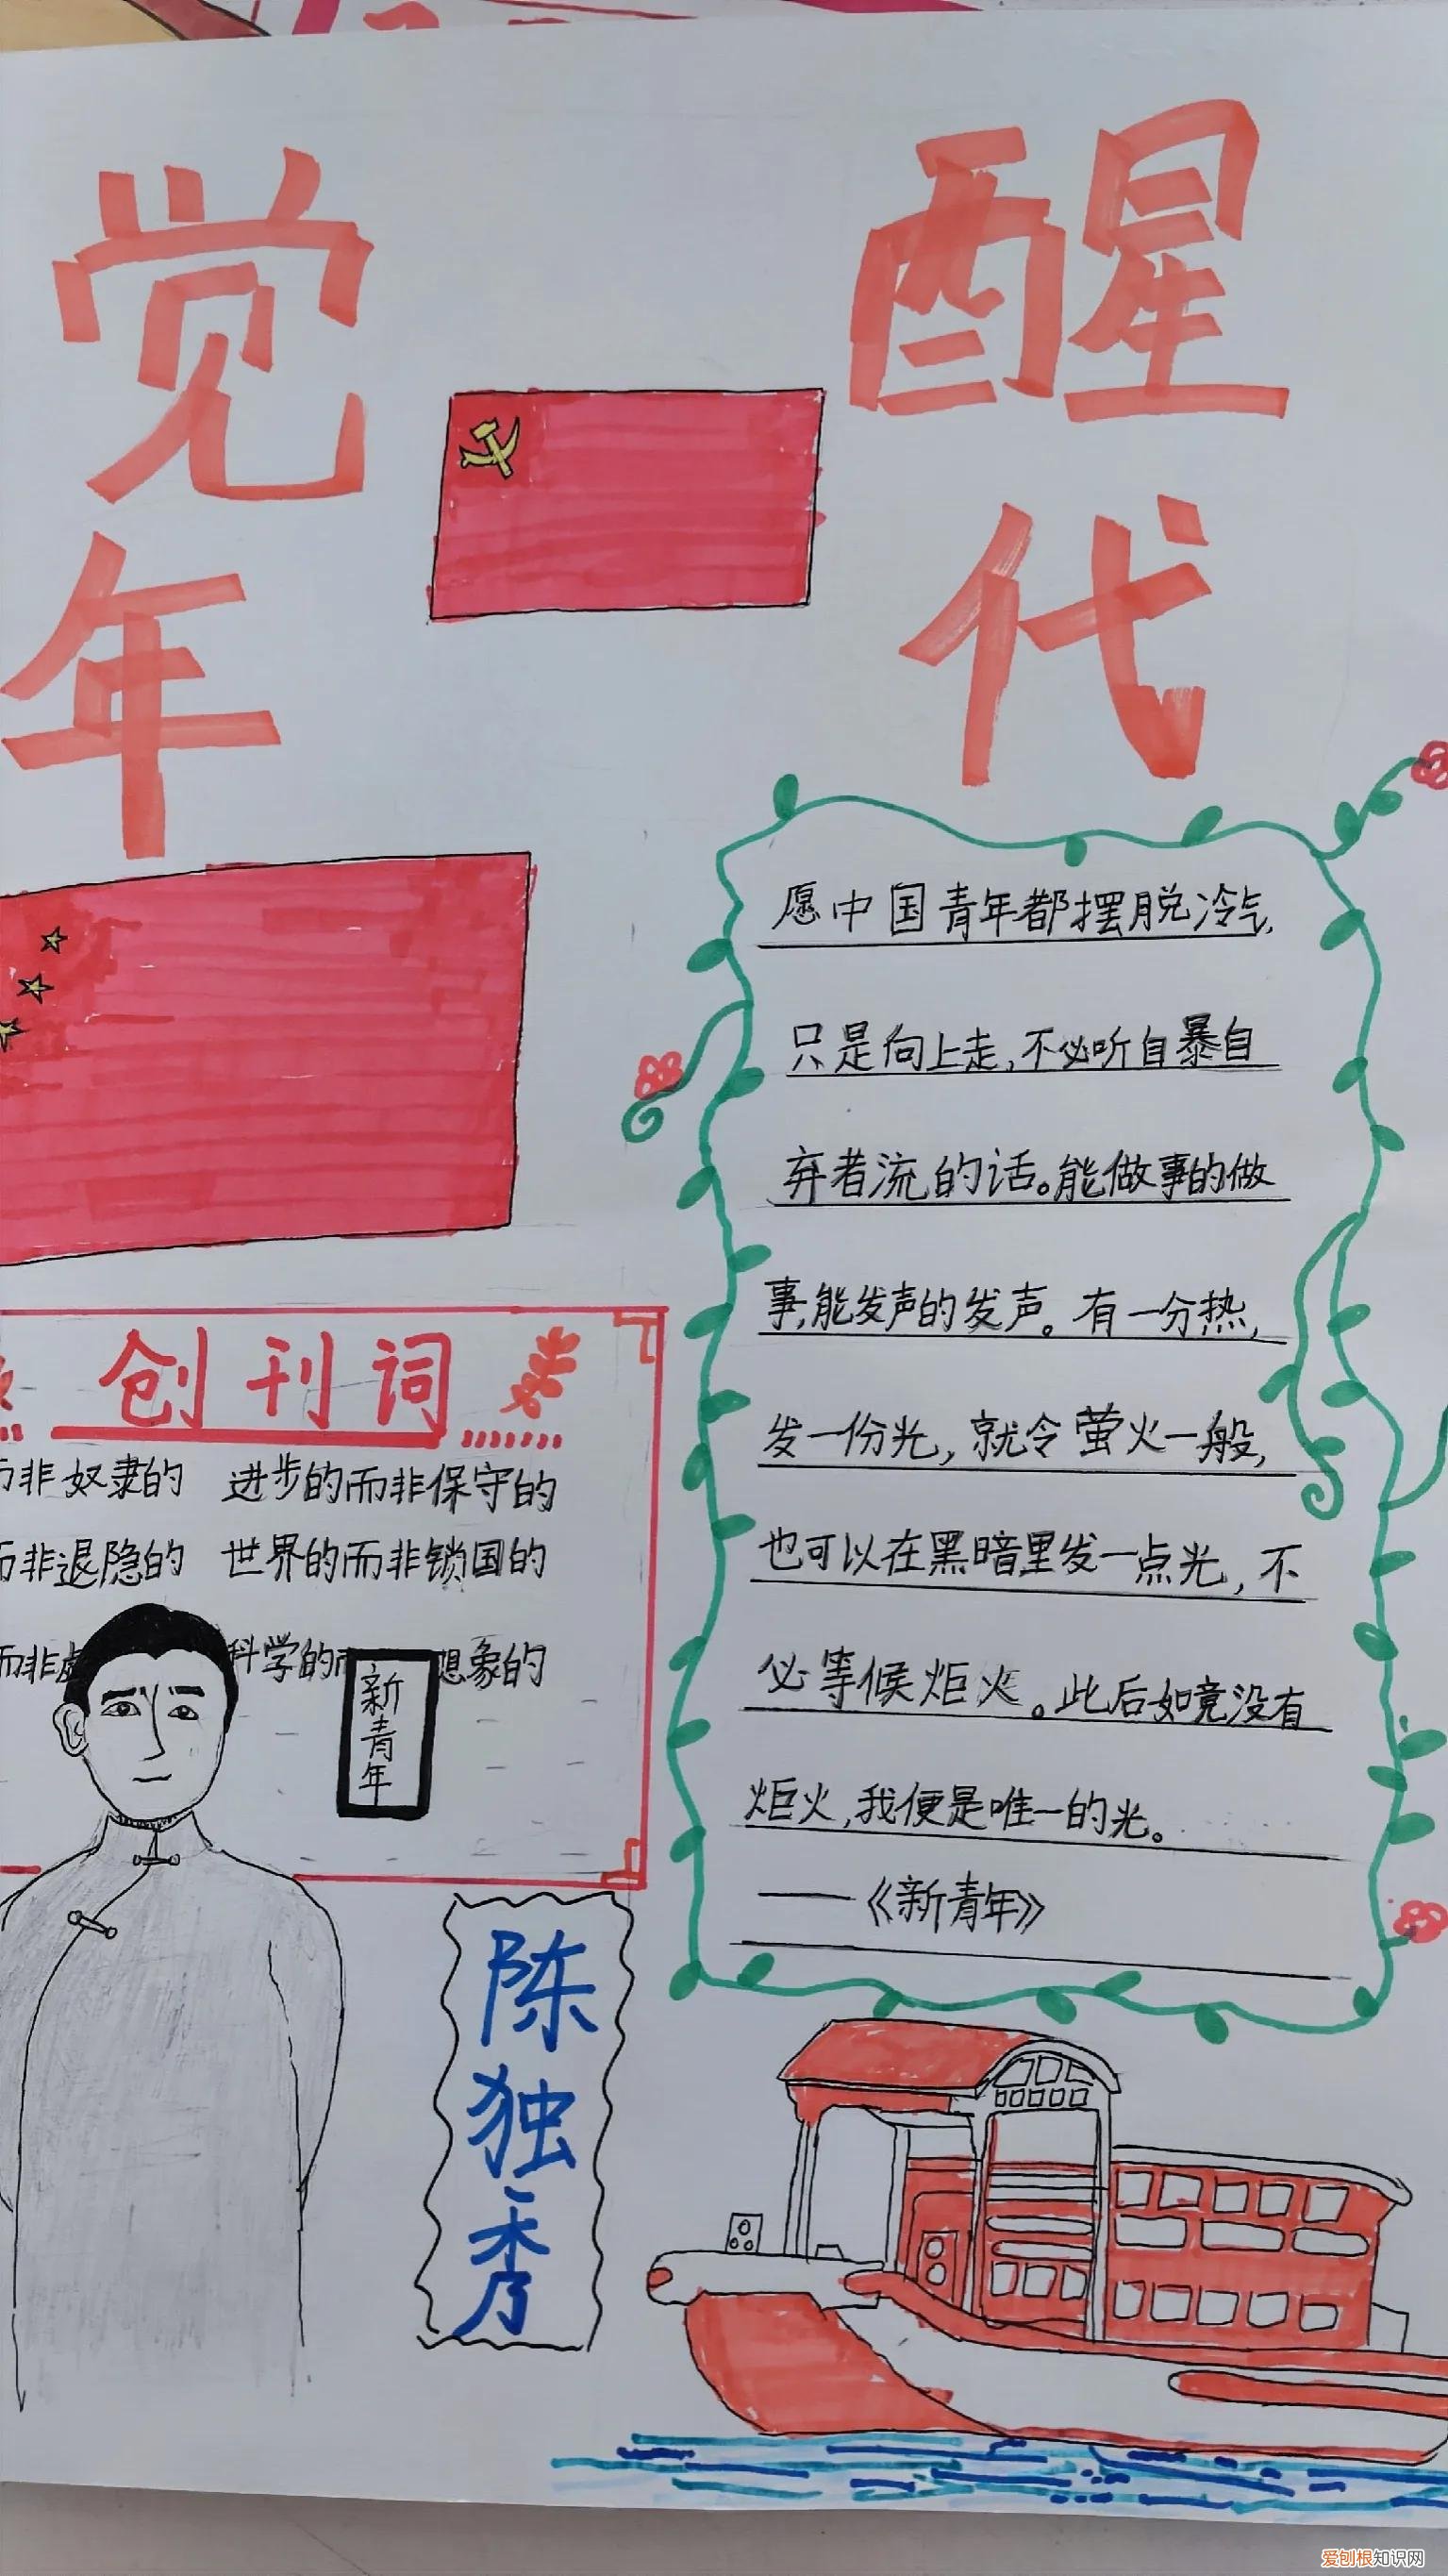 觉醒
年代
愿中国青年都摆脱冷气,
只是向上走,不必听自暴自
弃者流的话。能做事的做
事,能发声的发声。有一分热,
发一份光,就令萤火一般,
也可以在黑暗里发一点光,不
必等候炬火。此后如竟没有
炬火,我便是唯一的光。
——《新青年》
创刊词
而非奴隶的 进步的而非保守的
而非退隐的 世界的而非锁国的
而非虚 科学的而 想象的
新青年
陈独秀
爱刨根知识网